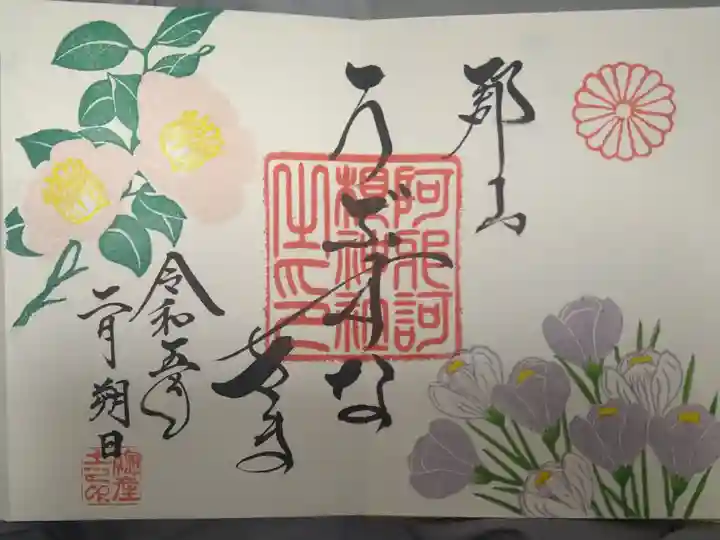 郡山
うぶすな
さま
阿邪訶
根神社
之印
令和五年
二月朔日